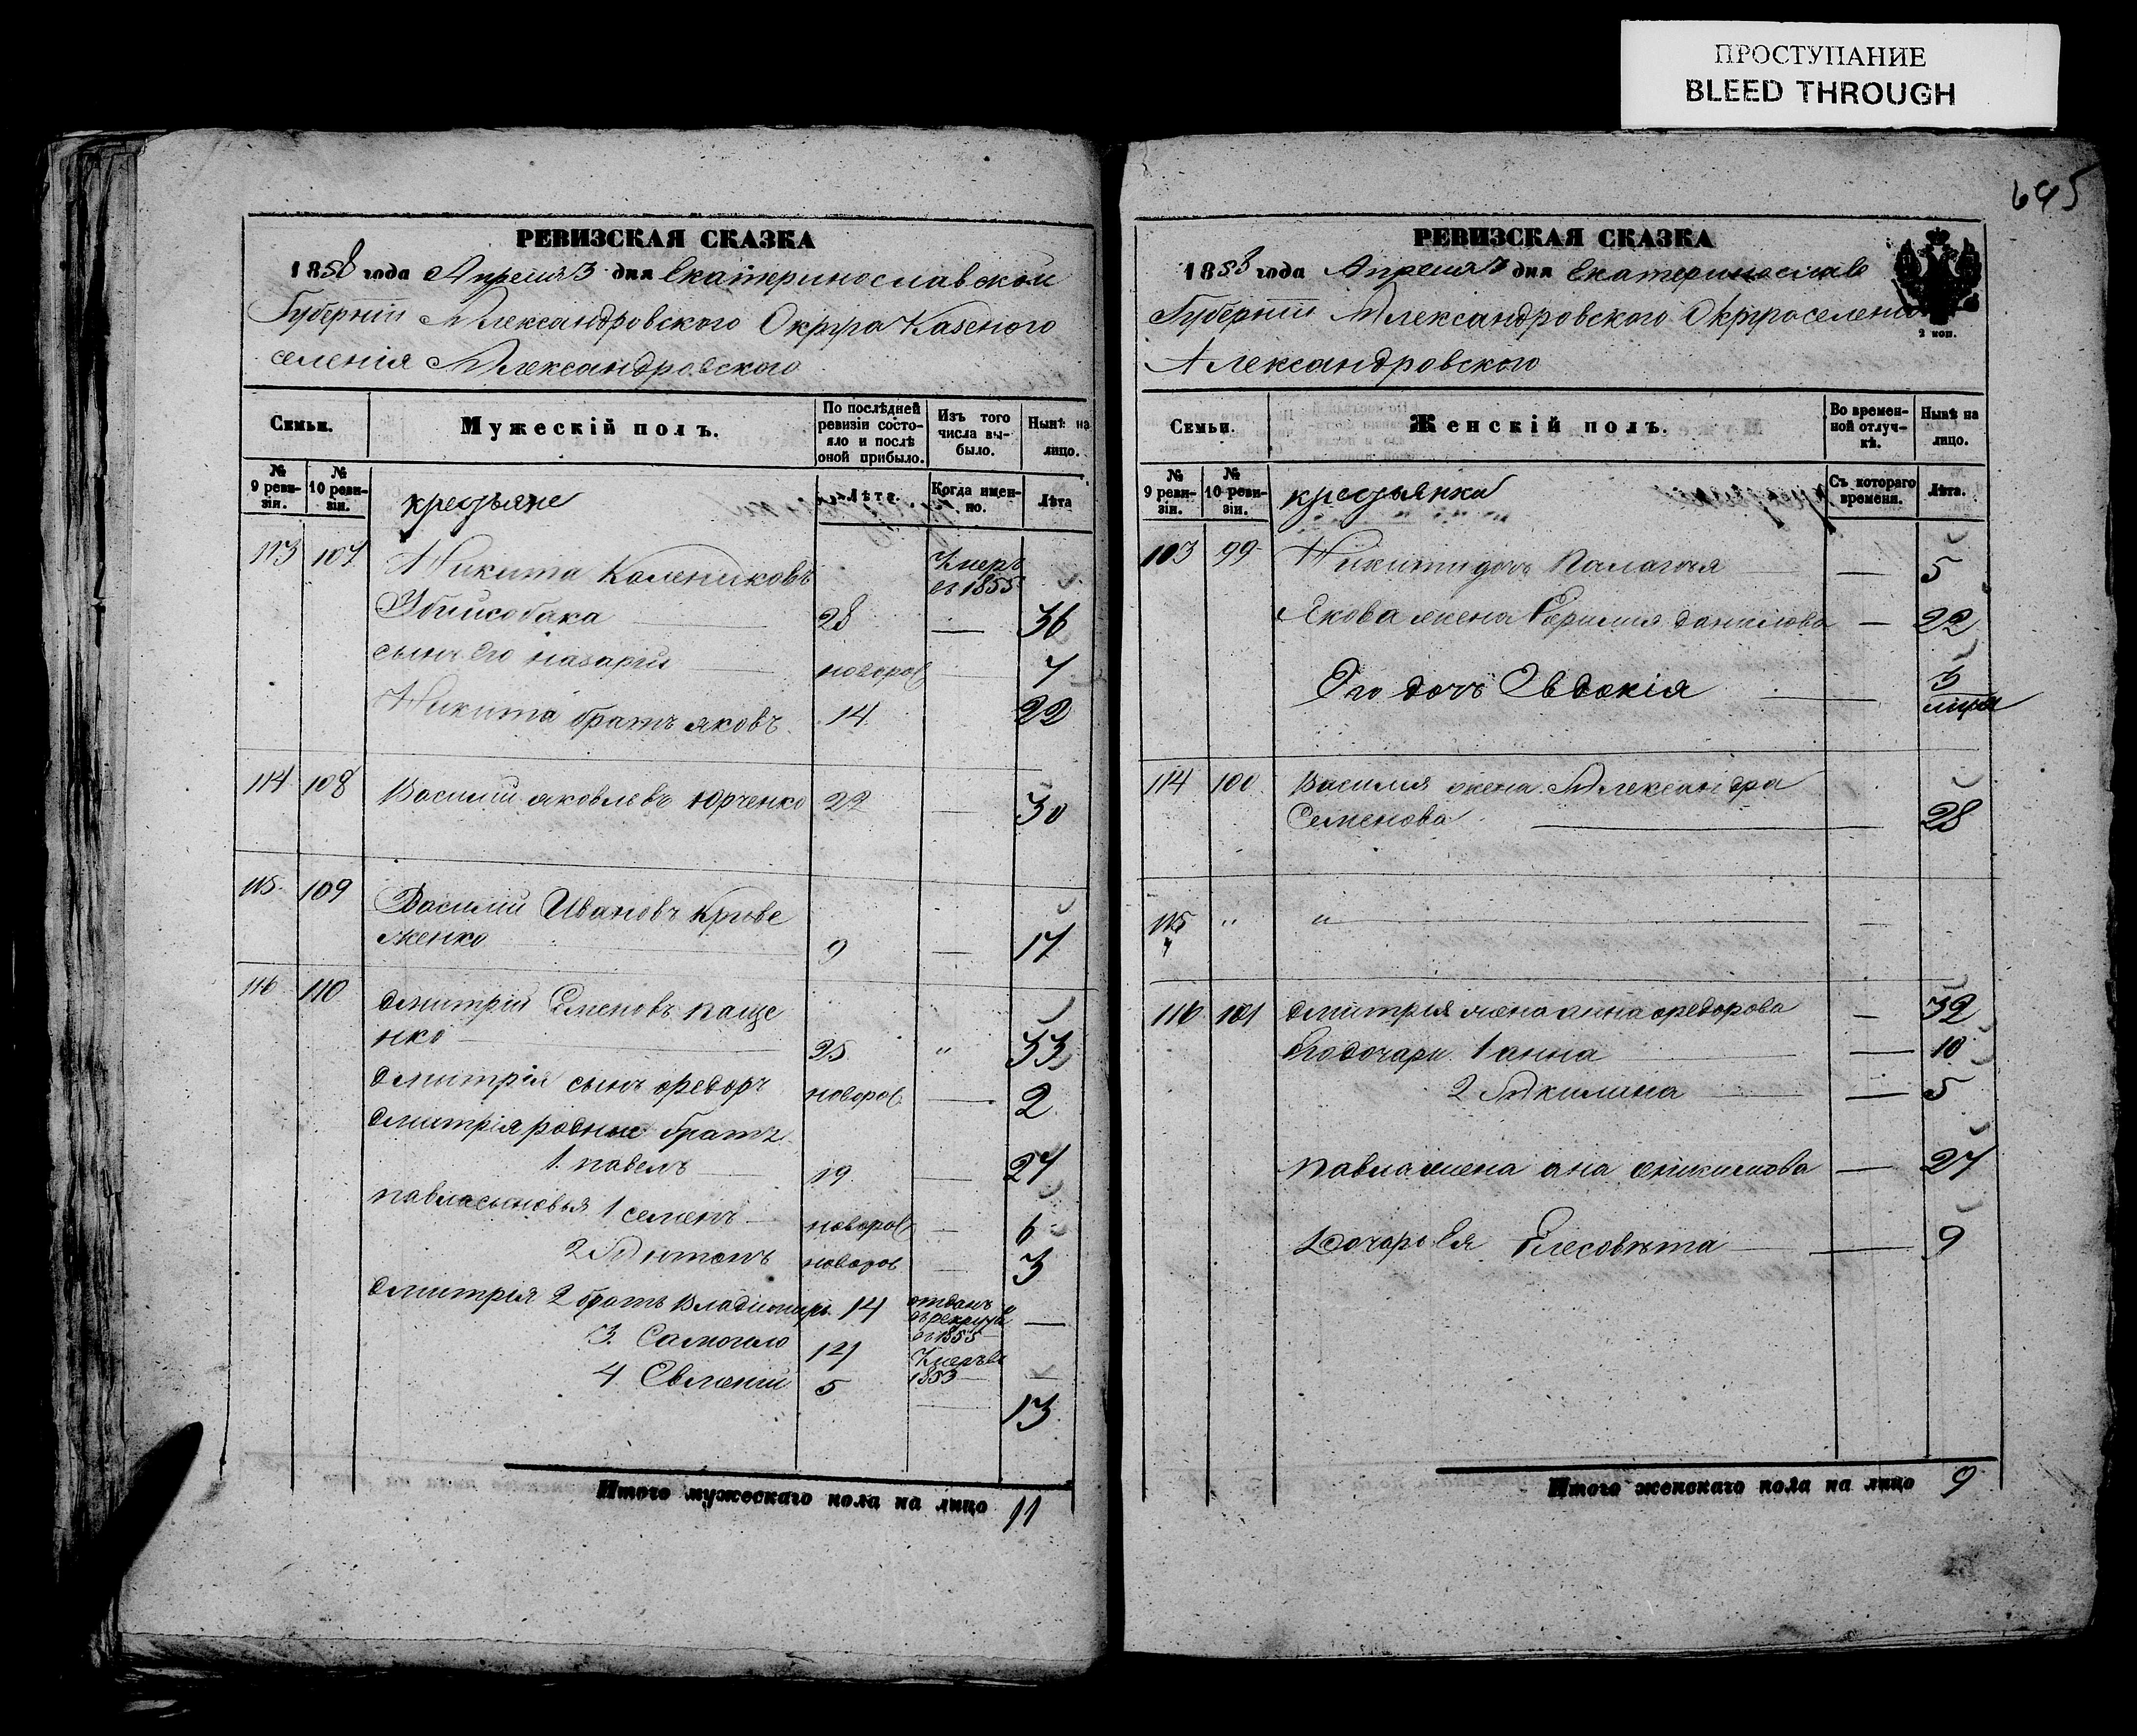 ПРОСТУПАНИЕ
BLEED THROUGH
695
РЕВИЗСКАЯ СКАЗКА
1858 года Апреля 3 дня Екатеринославской
Губернии Александровского Округа Казеного
селенія Александровского
Семьи.
Мужескій полъ.
По послѣдней ревизіи состояло и послѣ оной прибыло.
Изъ того числа выбыло.
Нынѣ на лицо.
№ 9 ревизіи.
№ 10 ревизіи.
крестьяне
Лѣта.
Когда именно.
Лѣта
113 107 Никита Калениковъ Умеръ въ 1855
Убийсобака 28 — 36
сынъ Его назарій новорож — 7
Никита братъ яковъ 14 22
114 108 Василий яковлевъ Юрченко 22 — 30
115 109 Василий Ивановъ Криве
женко 9 — 17
116 110 дмитрій Семеновъ паще
нко 25 " 33
дмитрія сынъ федоръ новорож — 2
дмитрія родные братъ
1. павелъ 19 — 27
павла сыновья 1 семенъ новорож — 6
2 Антонъ новорож — 3
дмитрія 2 братъ Владимиръ 14 отданъ в рекруты в 1855 —
3. Самоило 12 Умеръ в 1853 —
4. Евгений 5 — 13
Итого мужескаго пола на лицо 11
РЕВИЗСКАЯ СКАЗКА
1858 года Апреля 3 дня Екатеринослав
Губерніи Александровского Округа селения
Александровского
2 коп.
Семьи.
Женскій полъ.
Во временной отлучкѣ.
Нынѣ на лицо.
№ 9 ревизіи.
№ 10 ревизіи.
крестьянка
Съ котораго времени.
Лѣта.
103 99 Никити дочь Палагия — 5
Якова жена Ефимия данилова — 22
Его дочь Евдокія — 3
114 100 Василия жена Александра
Семенова — 28
115 " " —
116 101 дмитрия жена анна федорова — 32
Его дочари 1 анна — 10
2 Акилина — 5
павла жена ана — 27
Дочарь Ея Елесовета — 9
Итого женскаго пола на лицо 9